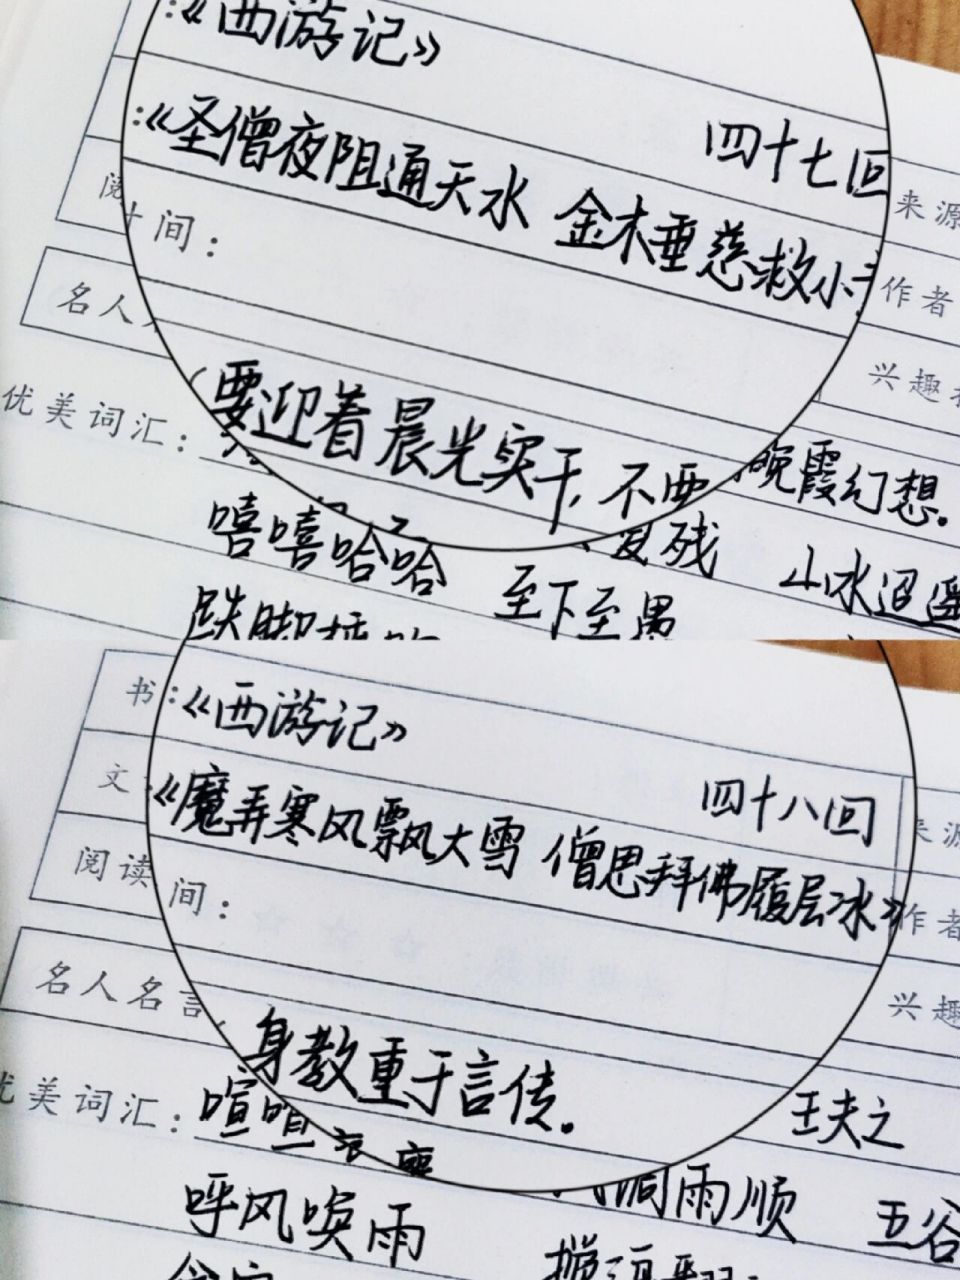 :《西游记》
四十七回
:《圣僧夜阻通天水 金木垂慈救小
来源
阅
间:
作者
名人
兴趣
要迎着晨光实干,不要
晚霞幻想。
优美词汇:
嘻嘻哈哈
残
山水迢遥
至下至愚
跌脚
书:《西游记》
四十八回
文
《魔弄寒风飘大雪 僧思拜佛履层冰》
源
阅读 间:
作者
名人名言
兴趣
身教重于言传。
王夫之
优美词汇:喧喧
呼风唤雨
调雨顺
五谷